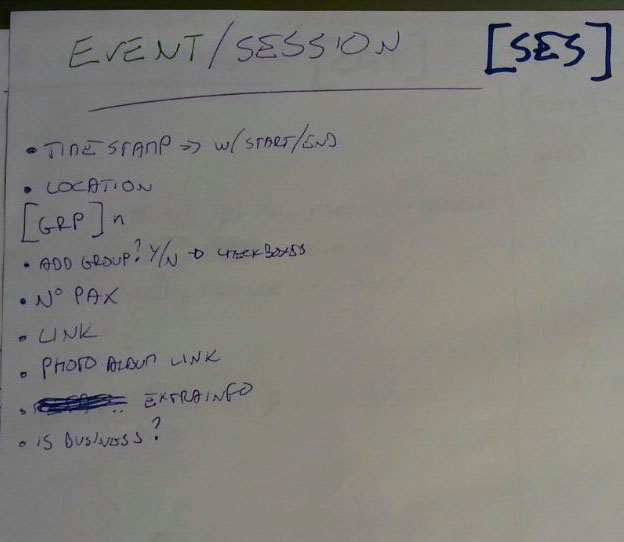 EVENT/SESSION [SES]
• TIMESTAMP => W/ START/END
• LOCATION
[GRP] n
• ADD GROUP? Y/N → CHECKBOXES
• Nº PAX
• LINK
• PHOTO ALBUM LINK
• EXTRAINFO
• IS BUSINESS?